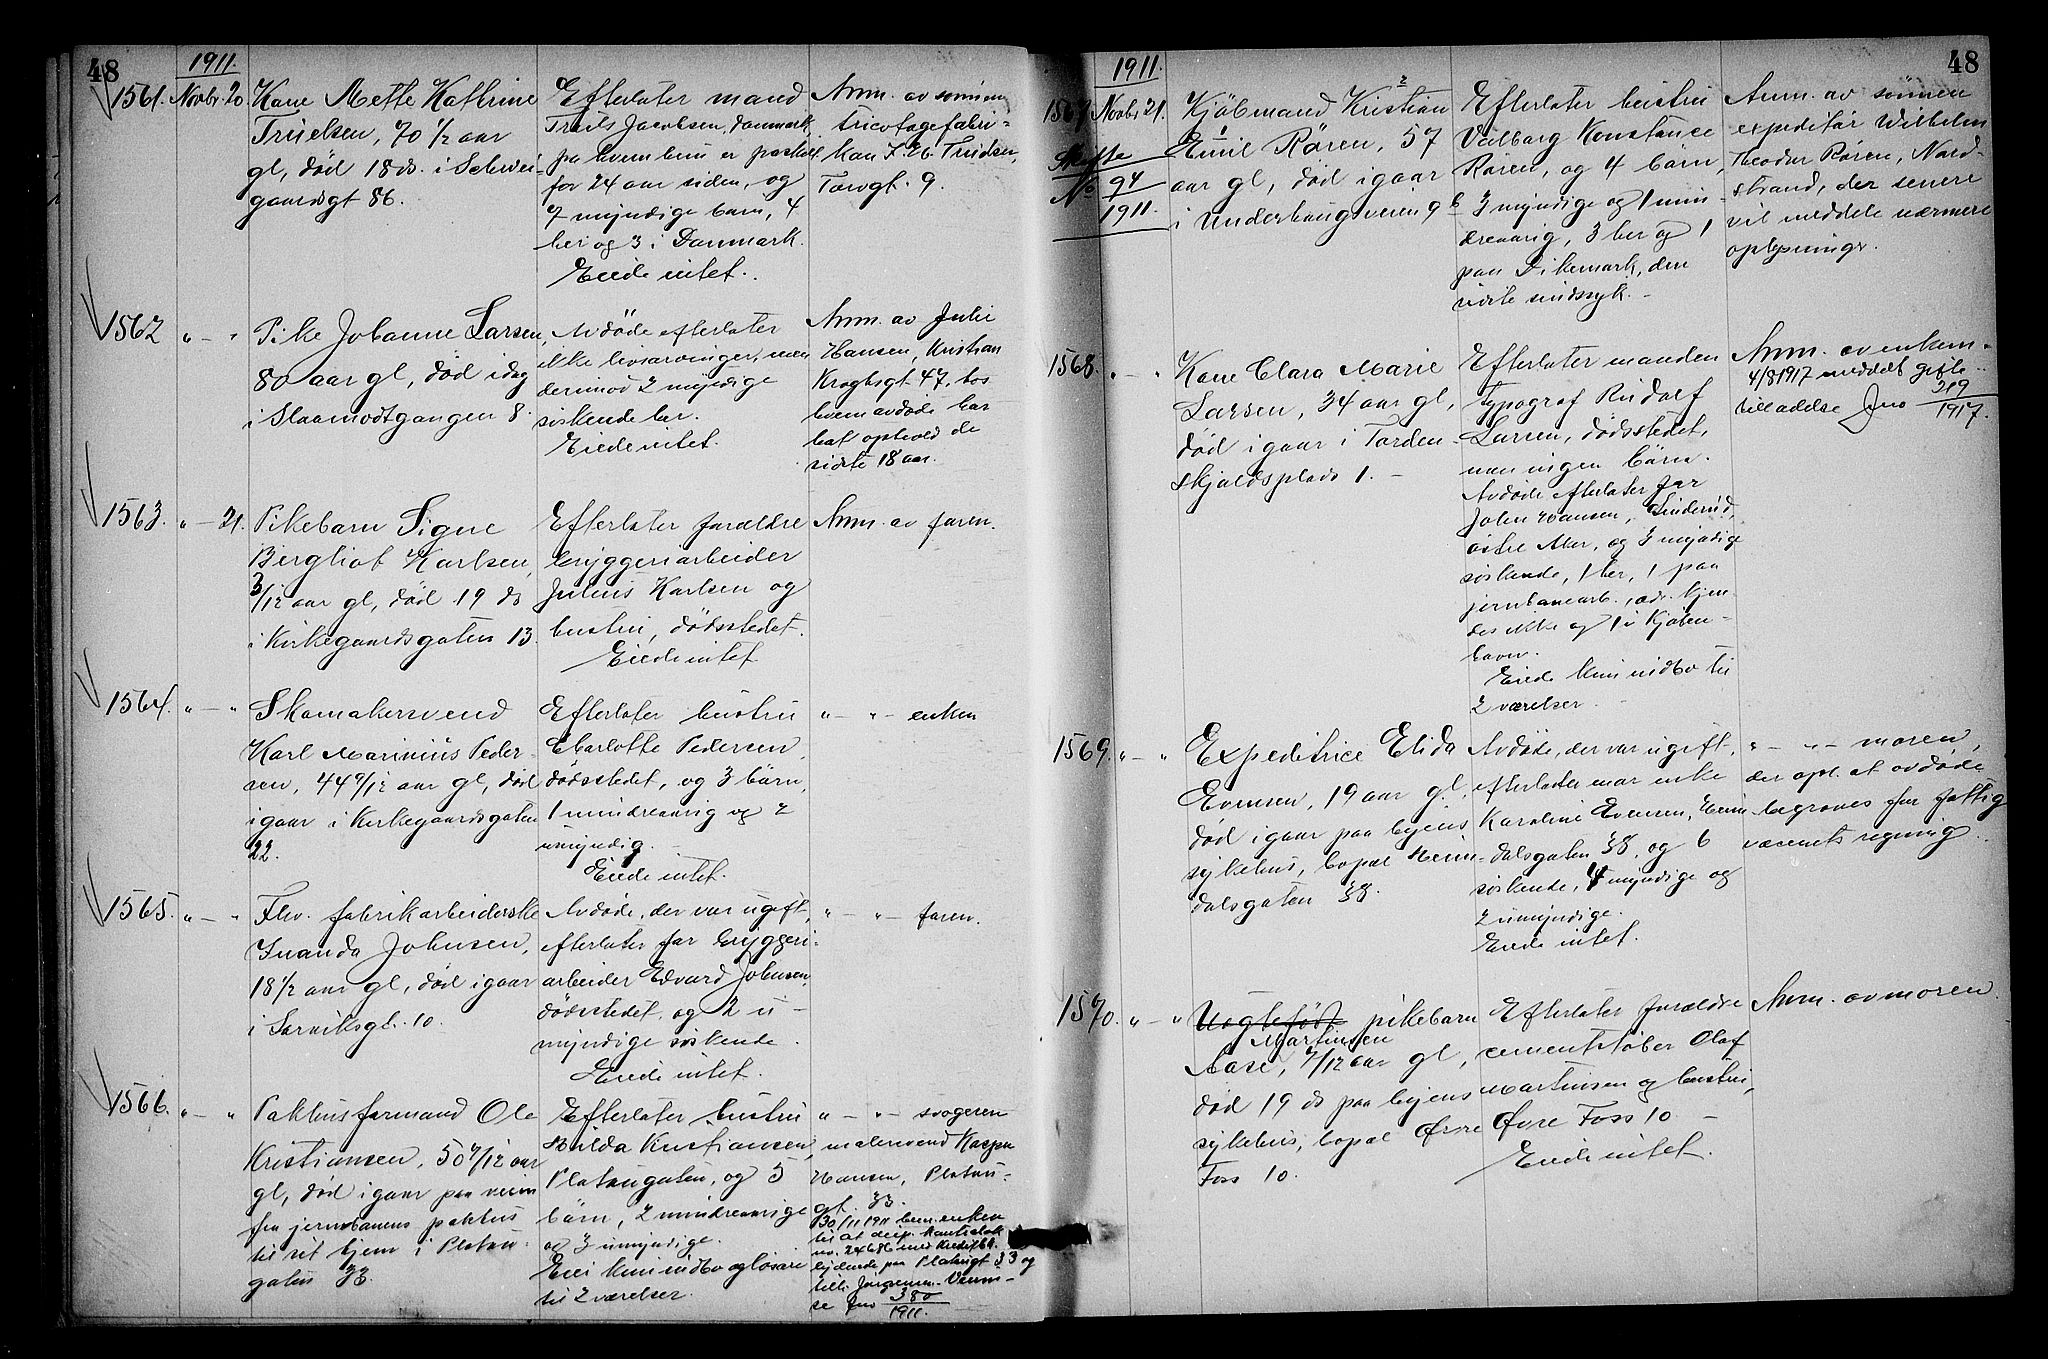 48
1911.
1561. Novbr. 20.
Kone Mette Kathrine
Truelsen, 70 1/2 aar
gl, død 18 ds. i Schwei-
gaardsgt 86.
Efterlater mand
Truels Jacobsen, Danmark,
fra hvem hun er
for 24 aar siden, og
7 myndige barn, 4
her og 3 i Danmark.
Eiede intet.
Anm. av sönnen
tricotagefabri-
kan Truelsen,
Torvgt. 9.
1562 " — "
Pike Johanne Larsen,
80 aar gl, død idag
i Slaamodtgangen 8.
Avdöde efterlater
ikke livsarvinger, men
derimod 2 myndige
söskende her.
Eiede intet.
Anm. av Julie
Hansen, Kristian
Kroghsgt 47, hos
hvem avdöde har
hat ophold de
sidste 18 aar.
1563. " — 21.
Pikebarn Signe
Bergliot Karlsen,
3/12 aar gl, död 19 ds
i Kirkegaardsgaten 13.
Efterlater forældre
bryggeriarbeider
Julius Karlsen og
hustru, dödsstedet.
Eiede intet
Anm. av faren.
1564. " — "
Skomakersvend
Karl Marinius Peder-
sen, 44 9/12 aar gl, död
igaar i Kirkegaardsgaten
22.
Efterlater hustru
Charlotte Pedersen,
dödsstedet, og 3 börn,
1 mindreaarig og 2
umyndig.
Eiede intet.
" — " — enken
1565. " — "
Fhv. fabrikarbeiderske
Inanda Johnsen,
18 1/2 aar gl, död igaar
i Larviksgt. 10.
Avdöde, der var ugift,
efterlater far bryggeri-
arbeider Edvard Johnsen,
dödsstedet, og 2 u-
myndige söskende.
Eiede intet.
" — " — faren.
1566. " — "
Pakhusformand Ole
Kristiansen, 50 7/12 aar
gl, död igaar paa veien
fra jernbanens pakhus
til sit hjem i Platou-
gaten 33.
Efterlater hustru
Hilda Kristiansen,
Platougaten, og 5
börn, 2 mindreaarige
og 3 umyndige.
Eier kun indbo og lösöre
til 2 værelser.
" — " — svogeren
malersvend Kaspar
Hansen, Platou-
gt. 33.
30/11 1911 bem. enken
til at disp. kontrabok
no. 24686 med Kreditbk.
lydende paa Platougt 33 og
tilh. Jörgensen-
se Jno 380/1911.
48
1911.
1567 Novbr 21.
Skifte
No 94
1911.
Kjöbmand Kristian
Emil Rören, 57
aar gl, död igaar
i Underhaugsveien 9 b
Efterlater hustru
Valborg Konstance
Rören, og 4 börn,
3 myndige og 1 min
dreaarig, 3 her og 1
paa Dikemark, den
sidste sindssyk.
Anm. av sönnen
expeditör Wilhelm
Theodor Rören, Nord-
strand, der senere
vil meddele nærmere
oplysninger.
1568. " — "
Kone Clara Marie
Larsen, 34 aar gl,
död igaar i Torden-
skjoldsplads 1.
Efterlater manden
typograf Rudolf
Larsen, dödsstedet,
men ingen börn.
Avdöde efterlater far
John Hansen, Linderud,
östre Aker, og 3 myndige
söskende, 1 her, 1 paa
jernbanearb., adr. kjen-
des ikke og 1 i Kjöben-
havn.
Eiede kun indbo til
2 værelser.
Anm. av enkem-
4/8 1917 meddelt gifte-
tilladelse Jno 219/1917.
1569. " — "
Expeditrice Elida
Evensen, 19 aar gl.
död igaar paa byens
sykehus, bopæl Heim-
dalsgaten 38.
Avdöde, der var ugift,
efterlater mor enke
Karoline Evensen, Heim
dalsgaten 38, og 6
söskende, 4 myndige og
2 umyndige.
Eiede intet.
" — " — moren,
der opl. at avdöde
begraves for fattig
væsenets regning.
1570. " — "
Uegtefödt pikebarn
Martinsen
Aase, 7/12 aar gl,
död 19 ds paa byens
sykehus, bopæl Övre
Foss 10.
Efterlater forældre
cementstöber Olaf
Martinsen og hustru,
Övre Foss 10 —
Eiede intet.
Anm. av moren.